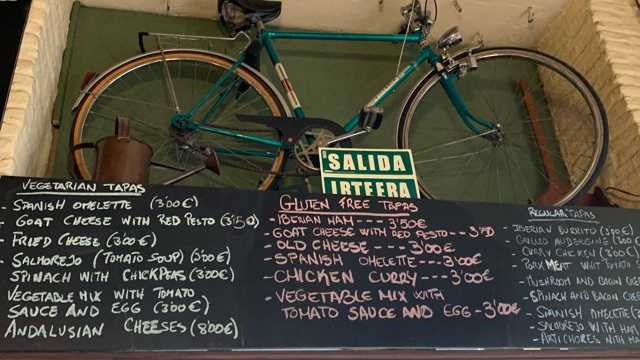 SALIDA
IRTEERA
VEGETARIAN TAPAS
- SPANISH OMELETTE (3'00€)
- GOAT CHEESE WITH RED PESTO (3'50)
- FRIED CHEESE (3'00€)
- SALMOREJO (TOMATO SOUP) (3'00€)
SPINACH WITH CHICKPEAS (3'00€)
VEGETABLE MIX WITH TOMATO
SAUCE AND EGG (3'00€)
ANDALUSIAN CHEESES (8'00€)
GLUTEN FREE TAPAS
- IBERIAN HAM --- 3'50€
- GOAT CHEESE WITH RED PESTO --- 3'50
- OLD CHEESE --- 3'00€
- SPANISH OMELETTE --- 3'00€
- CHICKEN CURRY --- 3'00€
- VEGETABLE MIX WITH
TOMATO SAUCE AND EGG - 3'00€
REGULAR TAPAS
IBERIAN BURRITO (3'00€)
GRILLED
CURRY CHICKEN (3'00€)
PORK MEAT WITH TOMATO
- MUSHROOM AND BACON
- SPINACH AND BACON
- SPANISH OMELETTE (3
- SALMOREJO WITH HAM
- ARTICHOKES WITH HA